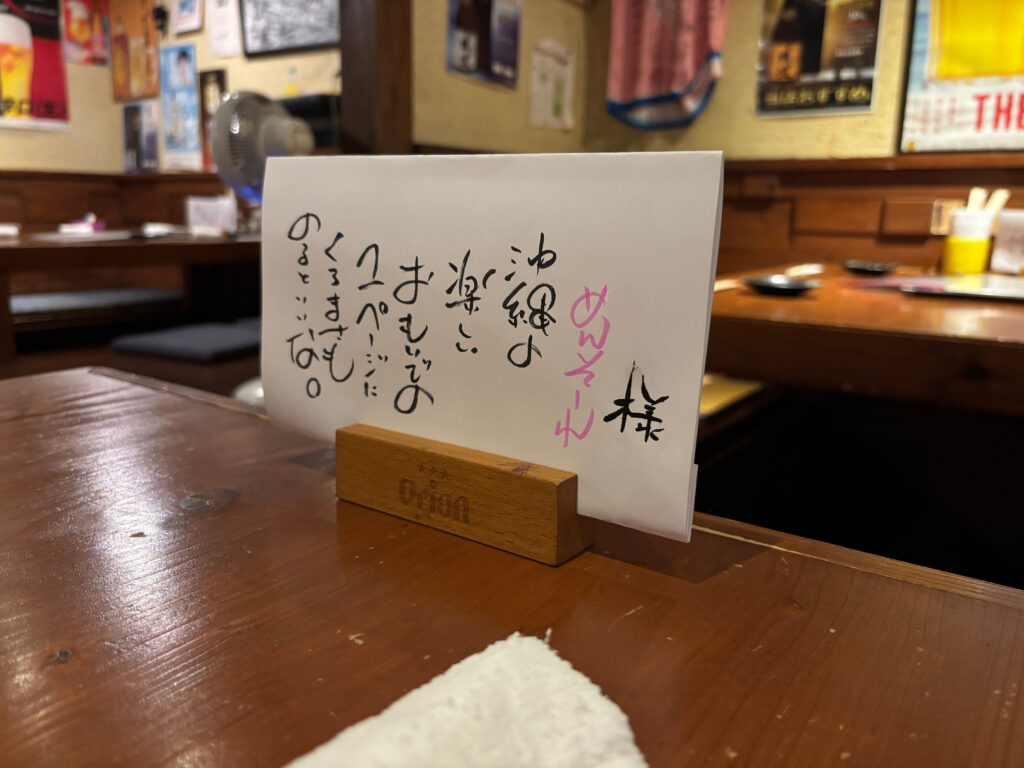 様
めんそーれ
沖縄の
楽しい
おもいでの
1ページに
くろすさも
のるといいな。
orion
THE